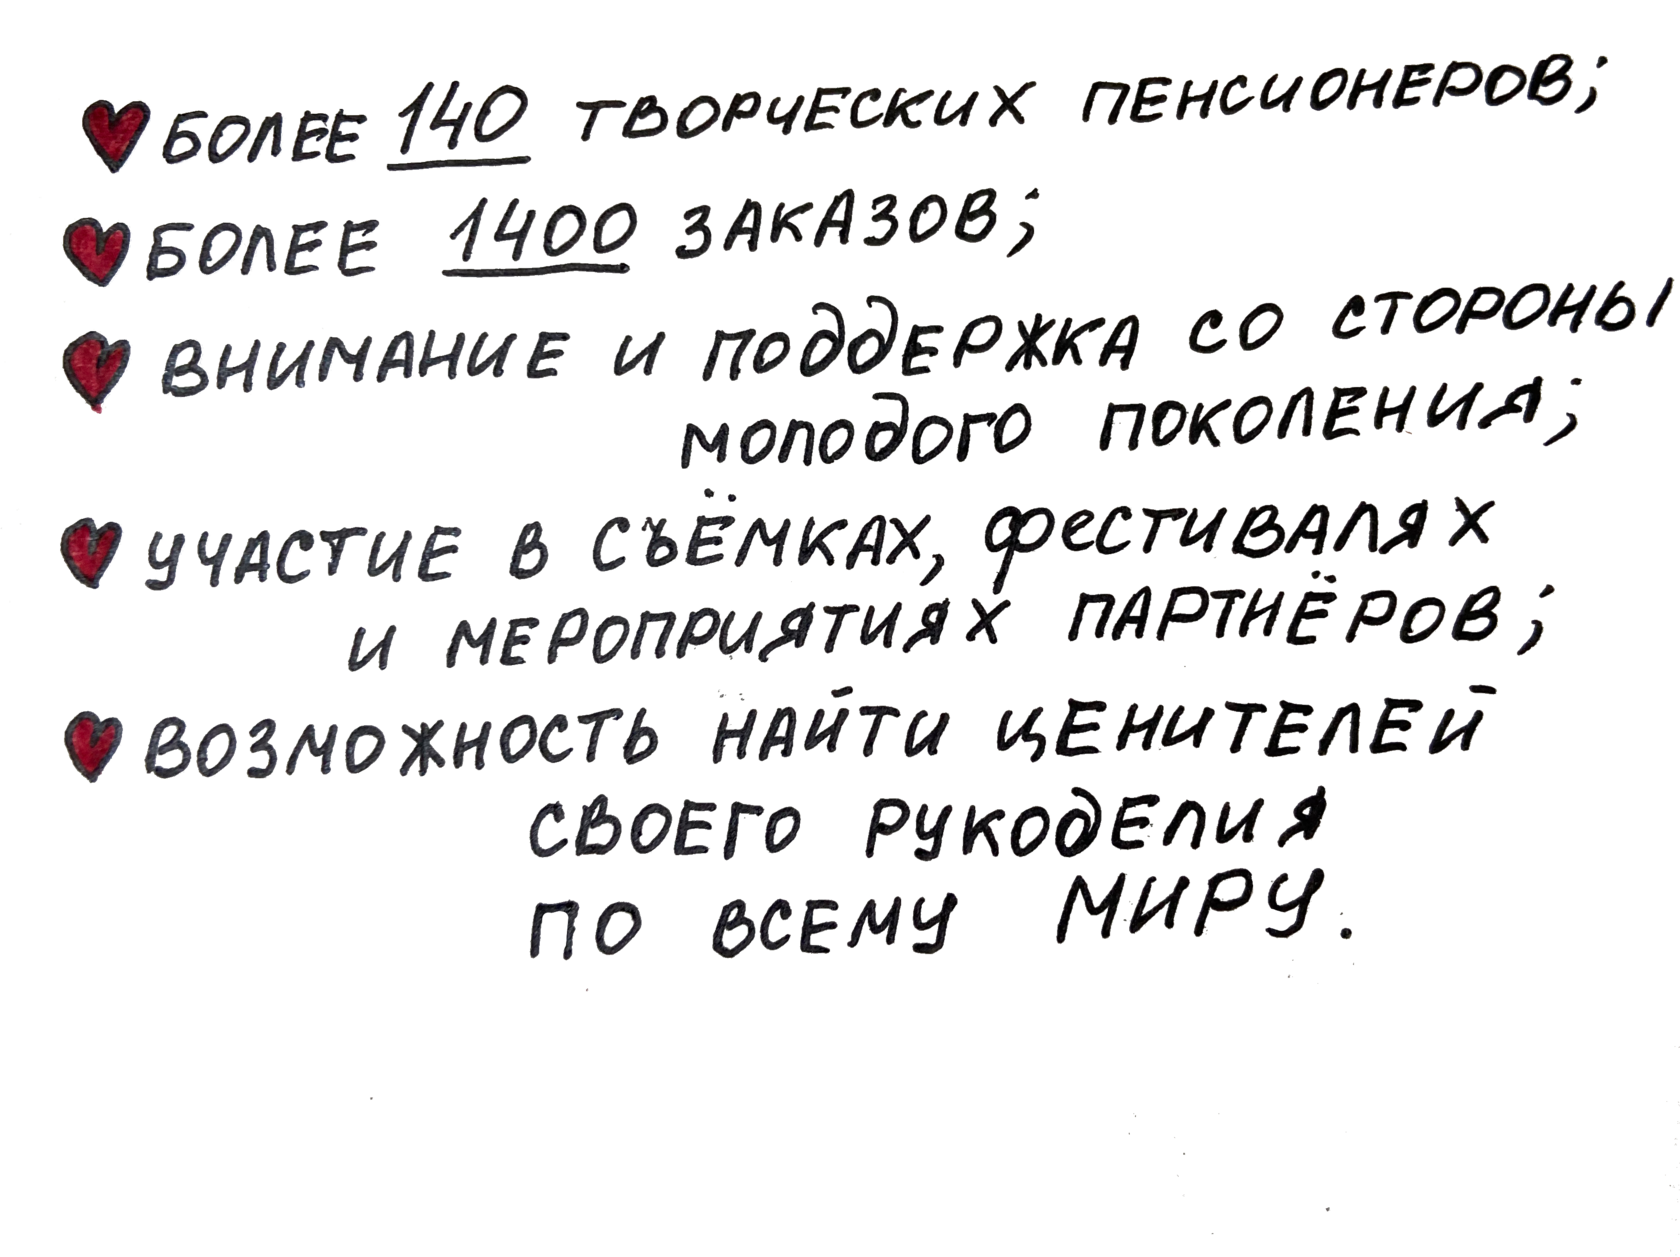 БОЛЕЕ 140 ТВОРЧЕСКИХ ПЕНСИОНЕРОВ;
БОЛЕЕ 1400 ЗАКАЗОВ;
ВНИМАНИЕ И ПОДДЕРЖКА СО СТОРОНЫ
МОЛОДОГО ПОКОЛЕНИЯ;
УЧАСТИЕ В СЪЁМКАХ, ФЕСТИВАЛЯХ
И МЕРОПРИЯТИЯХ ПАРТНЁРОВ;
ВОЗМОЖНОСТЬ НАЙТИ ЦЕНИТЕЛЕЙ
СВОЕГО РУКОДЕЛИЯ
ПО ВСЕМУ МИРУ.